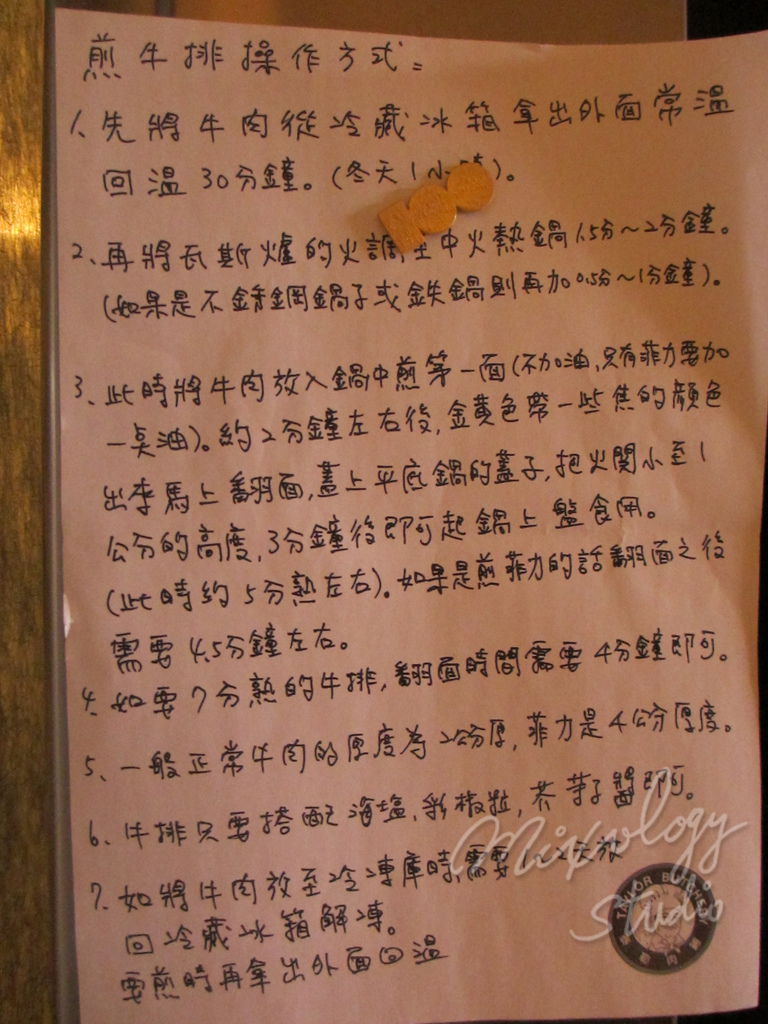 煎牛排操作方式=
1、先將牛肉從冷藏冰箱拿出外面常溫
回溫30分鐘。(冬天1小時)。
2、再將瓦斯爐的火調至中火熱鍋1.5分～2分鐘。
(如果是不銹鋼鍋子或鉄鍋則再加0.5分～1分鐘)。
3、此時將牛肉放入鍋中煎第一面(不加油,只有菲力要加
一点油)。約2分鐘左右後,金黃色帶一些焦的顏色
出來馬上翻面,蓋上平底鍋的蓋子,把火關小至1
公分的高度,3分鐘後即可起鍋上盤食用。
(此時約5分熟左右)。如果是煎菲力的話翻面之後
需要4.5分鐘左右。
4、如要7分熟的牛排,翻面時間需要4分鐘即可。
5、一般正常牛肉的厚度為2公分厚,菲力是4公分厚度。
6、牛排只要搭配海塩,彩椒粒,芥芛子醬即可。
7、如將牛肉放至冷凍庫時,需要1~2天放
回冷藏冰箱解凍。
要煎時再拿出外面回溫
Mixology
Studio
TAILOR BUTCHERY